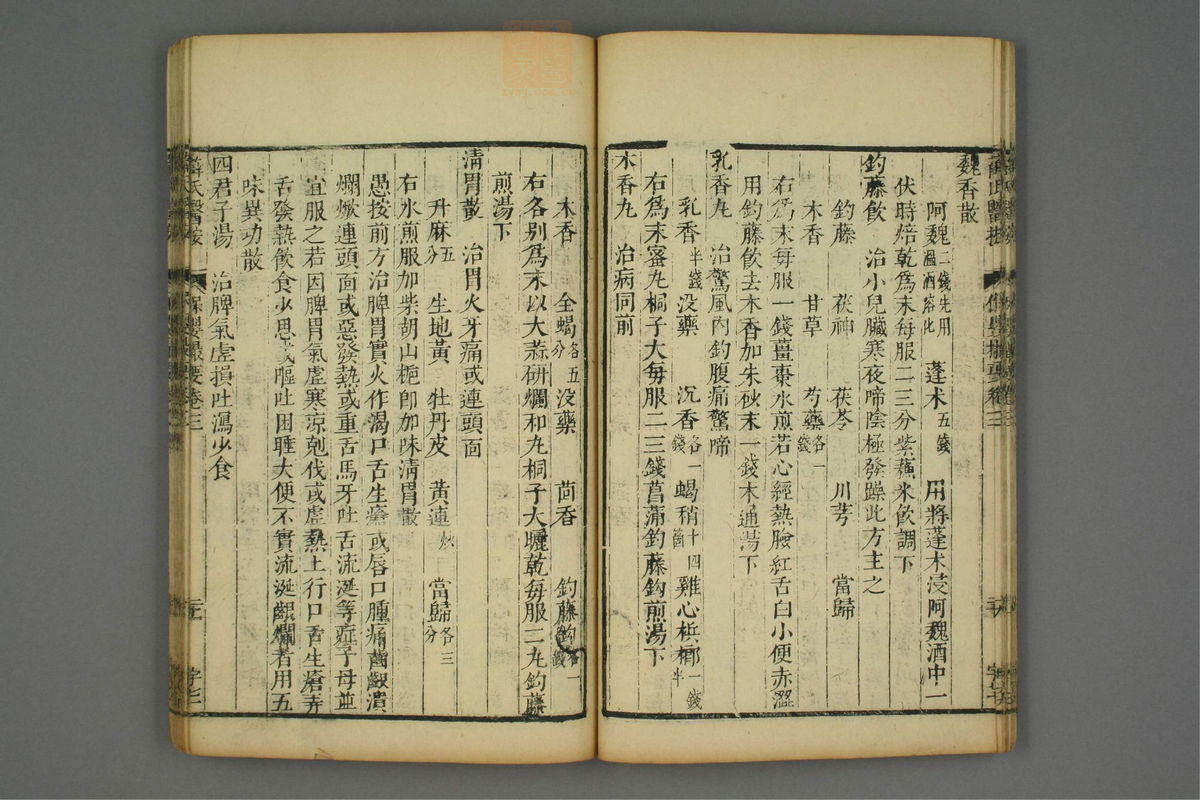 魏香散
阿魏二錢先用溫酒溶化 蓬朮五錢 用將蓬朮浸阿魏酒中一
伏時焙乾爲末每服二三分紫蘇米飲調下
鈎藤飲 治小兒臟寒夜啼陰極發躁此方主之
鈎藤 茯神 茯苓 川芎 當歸
木香 甘草 芍藥各一錢
右爲末每服一錢薑棗水煎若心經熱臉紅舌白小便赤澀
用鈎藤飲去木香加朱砂末一錢木通湯下
乳香丸 治驚風內鈎腹痛驚啼
乳香半錢 沒藥 沉香各一錢 蝎稍十四箇 雞心檳榔一錢半
右爲末蜜丸桐子大每服二三錢菖蒲鈎藤鈎煎湯下
木香丸 治病同前
木香 全蝎各五分 沒藥 茴香 鈎藤鈎各一錢
右各别爲末以大蒜研爛和丸桐子大曬乾每服二丸鈎藤
煎湯下
清胃散 治胃火牙痛或連頭面
升麻五分 生地黃 牡丹皮 黃連炒 當歸各三分
右水煎服加柴胡山梔卽加味清胃散
愚按前方治脾胃實火作渴口舌生瘡或唇口腫痛齒齦潰
爛焮連頭面或惡發熱或重舌馬牙吐舌流涎等症子母並
宜服之若因脾胃氣虛寒涼剋伐或虛熱上行口舌生瘡弄
舌發熱飲食少思或嘔吐困睡大便不實流涎齦爛者用五
味異功散
四君子湯 治脾氣虛損吐瀉少食
薛氏醫按 保嬰撮要卷三